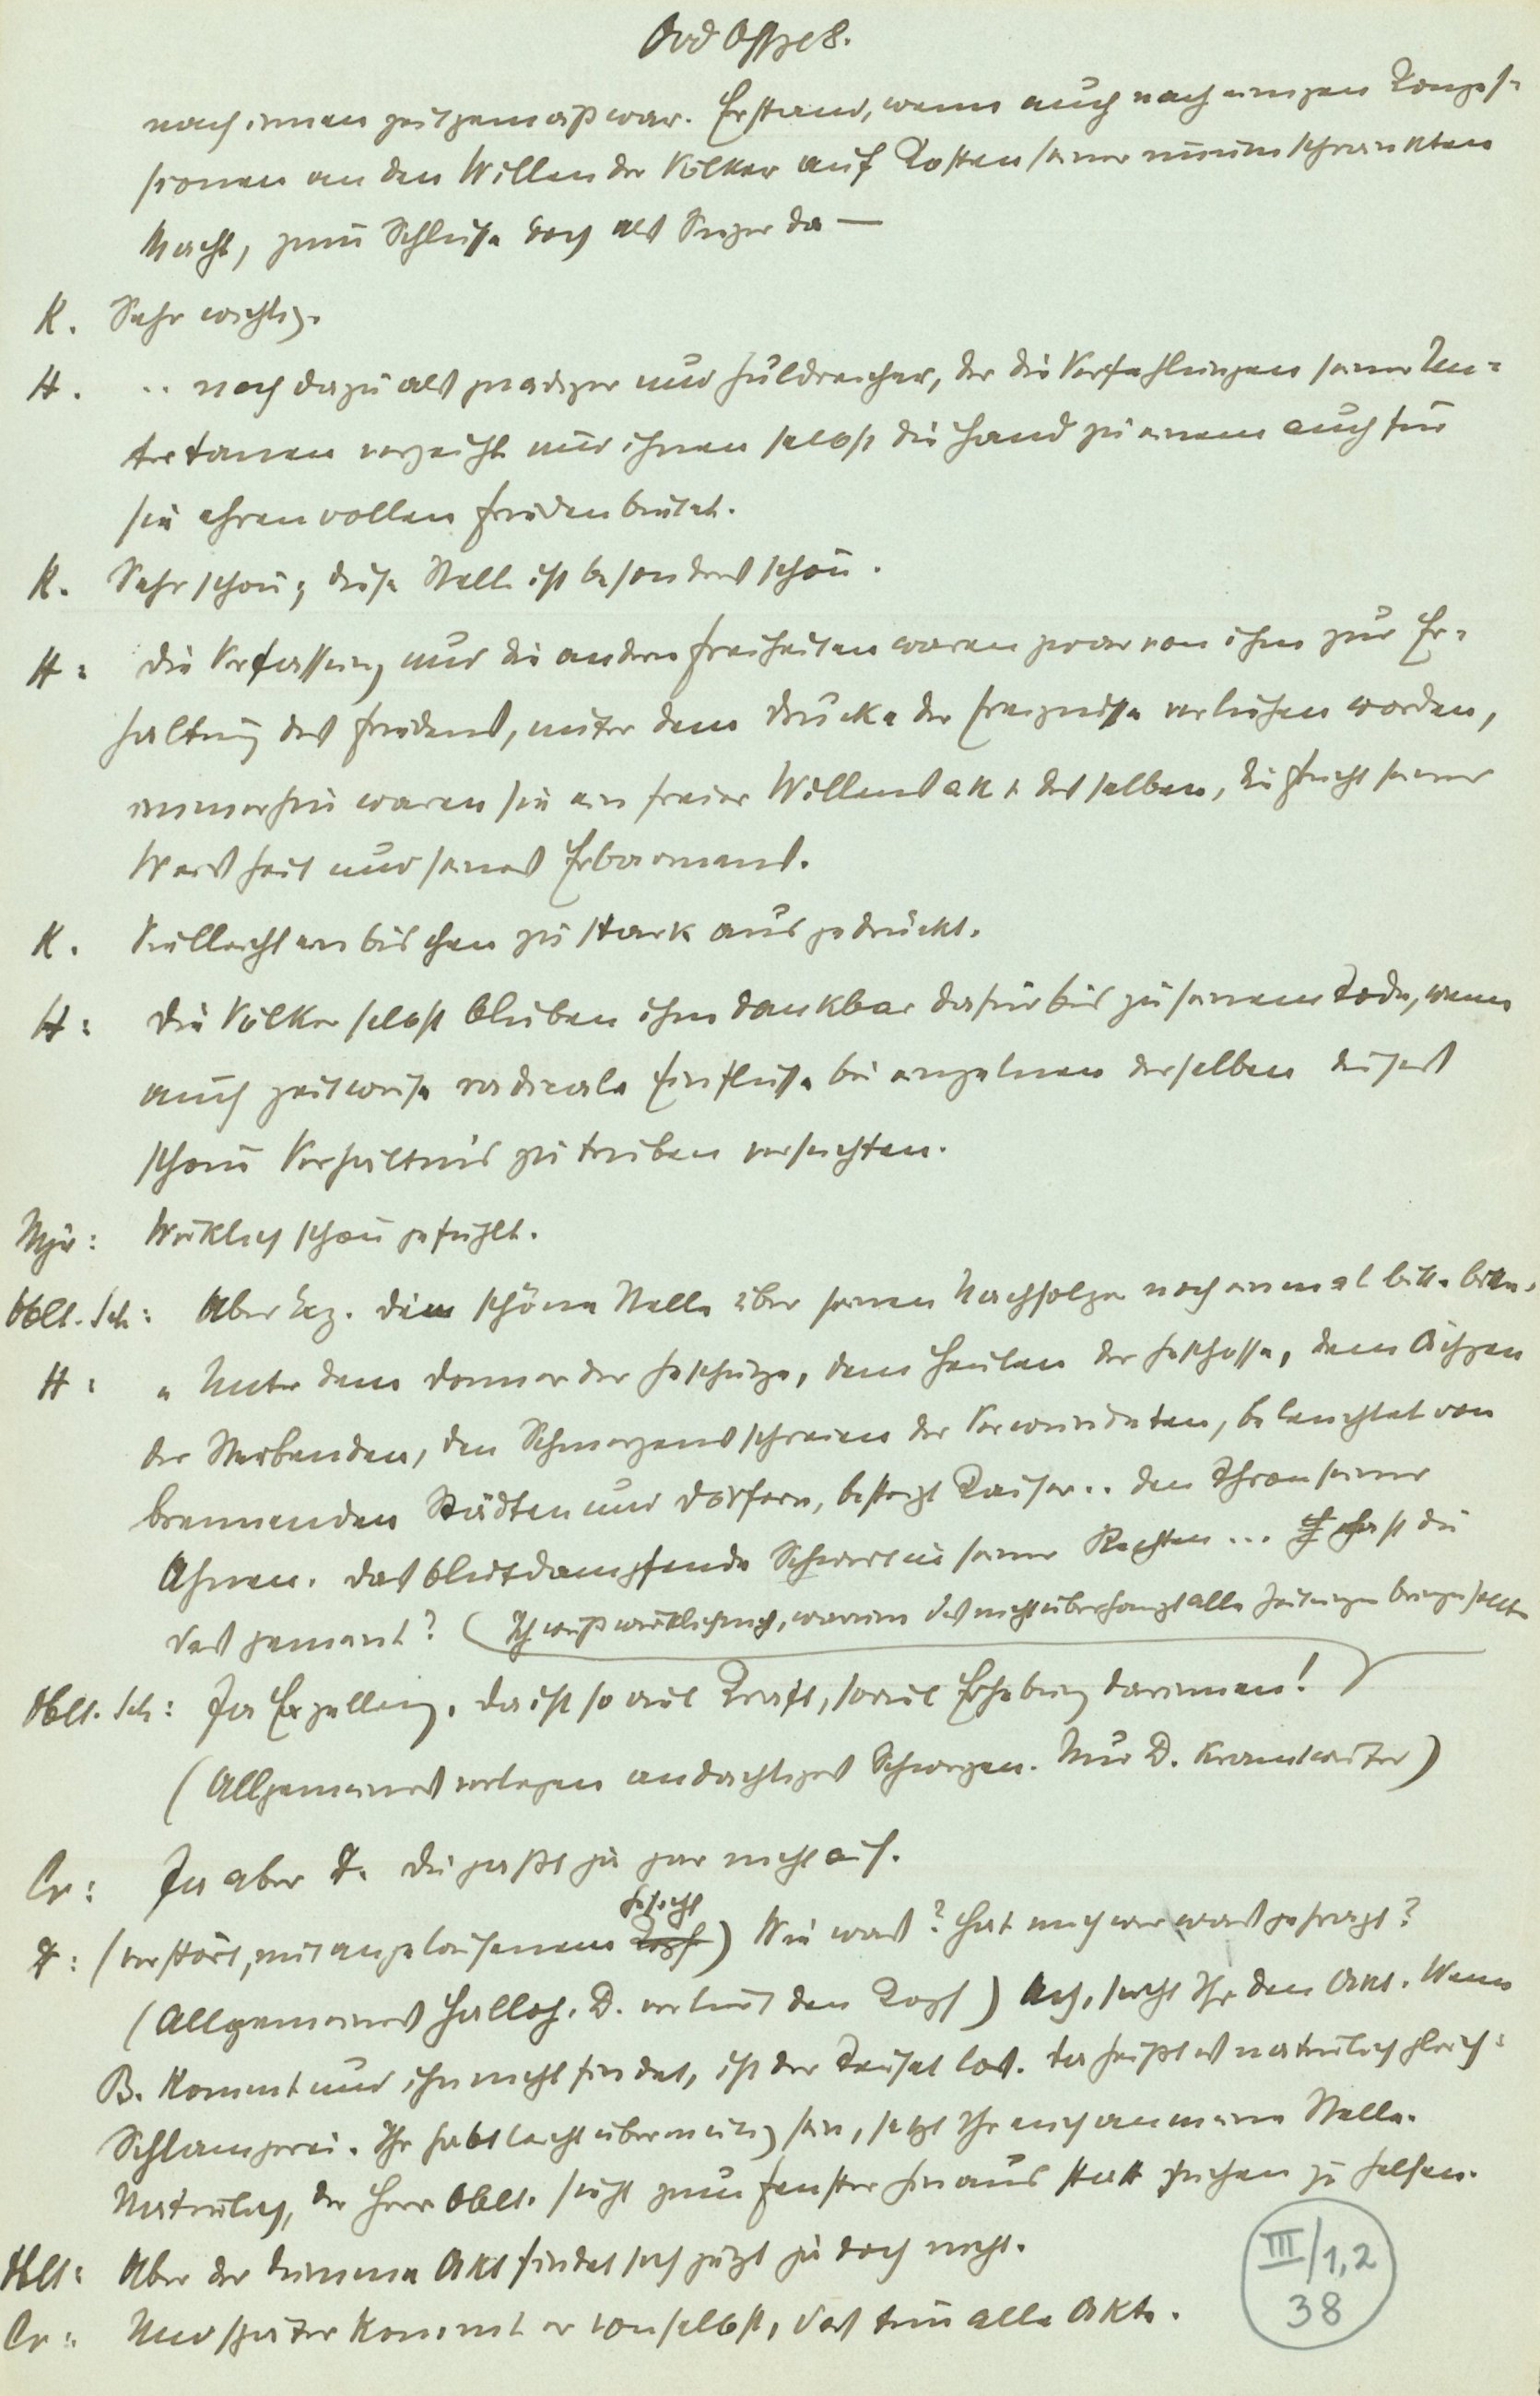 nach innen zeitgemäß war. Er stand, wenn auch nach einigen Konzes-
sionen an den Willen der Völker auf Kosten seiner uneinschränkten
Macht, zum Schlusse doch als Sieger da —
K. Sehr wichtig.
H. .. noch dazu als gnädiger und huldreicher, der die Verfehlungen seiner Un-
tertanen verzeiht und ihnen selbst die Hand zu einem auch für
sie ehrenvollen Frieden bietet.
K. Sehr schön, diese Stelle ist besonders schön.
H: Die Verfassung und die andern Freiheiten waren zwar von ihm zur Er-
haltung des Friedens, unter dem Drucke der Ereignisse verliehen worden,
immerhin waren sie ein freier Willensakt desselben, die Frucht seiner
Weisheit und seines Erbarmens.
K. Vielleicht ein bischen zu stark ausgedrückt.
H: Die Völker selbst blieben ihm dankbar dafür bis zu seinem Tode, wenn
auch zeitweise radicale Einflüsse bei einzelnen derselben dieses
schöne Verhältnis zu trüben versuchten.
Mjr: Wirklich schön gefühlt.
Oblt. Sch: Aber Exz. die schöne Stelle über seinen Nachfolger noch einmal bitte bitte.
H: „Unter dem Donner der Geschütze, dem Heulen der Geschosse, dem Ächzen
der Sterbenden, den Schmerzensschreien der Verwundeten, beleuchtet von
brennenden Städten und Dörfern, besteigt Kaiser .. den Thron seiner
Ahnen. Das blutdampfende Schwert in seiner Rechten ... hast du
das gemeint? (Ich weiß wirklich nicht, warum das nicht überhaupt alle Zeitungen bringen sollten
Oblt. Sch: Ja Exzellenz. Da ist so viel Kraft, soviel Erhebung darinnen!
(Allgemeines verlegen andächtiges Schweigen. Nur D. kramt weiter)
Cr: Ja aber D. Du paßt ja gar nicht auf.
D: (verstört, mit angelaufenem Kopf Gesicht) Wie was? Hat mich wer was gefragt?
(Allgemeines Halloh. D. verliert den Kopf) Ach, sucht Ihr den Akt. Wenn
B. kommt und ihn nicht findet, ist der Teufel los. Da heißt es natürlich gleich:
Schlamperei. Ihr habt leicht übermütig sein, setzt Ihr euch an meine Stelle.
Natürlich, der Herr Oblt. sieht zum Fenster hinaus statt suchen zu helfen.
Oblt: Aber der dumme Akt findet sich jetzt ja doch nicht.
Cr: Und später kommt er von selbst, das tun alle Akte.
III/1,2
38